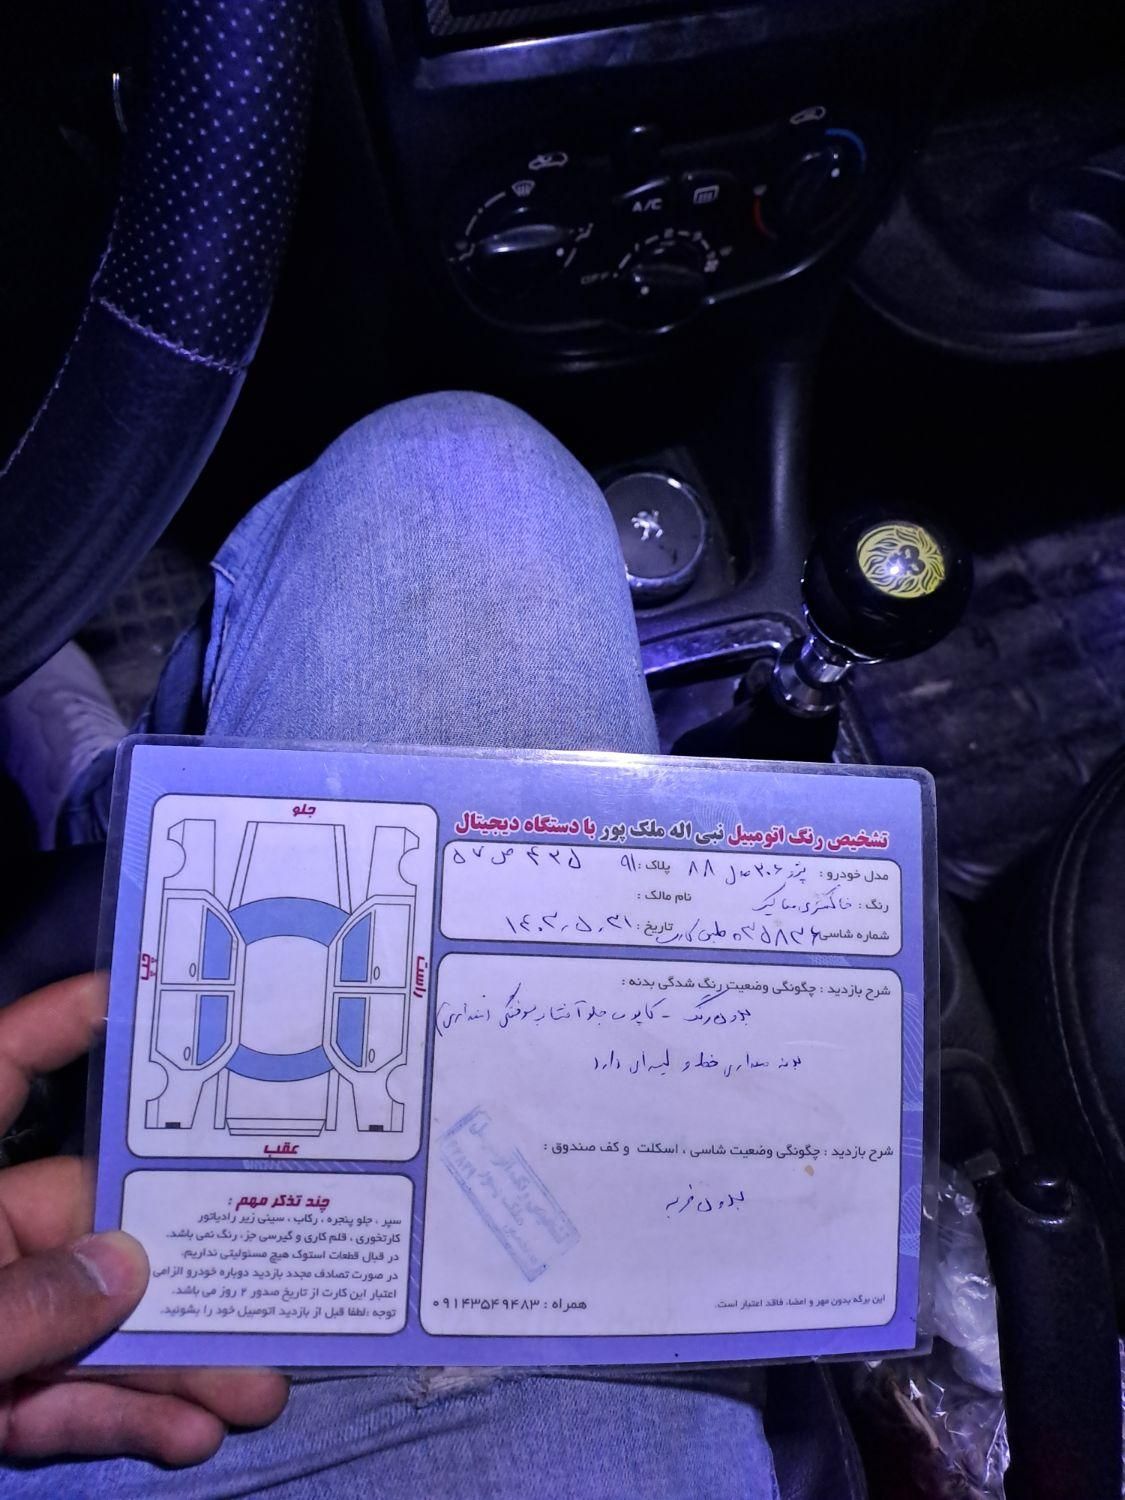 A/C
OFF
تشخیص رنگ اتومبیل نبی اله ملک پور با دستگاه دیجیتال
مدل خودرو : پژو ۲۰۶ مدل ۸۸ پلاک : ۹۱ ۴۳۵ ص ۵۷
رنگ : خاکستری متالیک نام مالک :
شماره شاسی ۰۳۵۸۳۶ طبق کارت تاریخ : ۱۴۰۳٫۵٫۳۱
شرح بازدید : چگونگی وضعیت رنگ شدگی بدنه :
بدون رنگ - کاپوت جلو آفتاب سوختگی
بدنه مقداری خط و لیسه‌ای دارد
شرح بازدید : چگونگی وضعیت شاسی ، اسکلت و کف صندوق :
بدون ضربه
همراه : ۰۹۱۴۳۵۴۹۴۸۳
این برگه بدون مهر و امضاء فاقد اعتبار است.
جلو
چپ
راست
عقب
چند تذکر مهم :
سپر ، جلو پنجره ، رکاب ، سینی زیر رادیاتور
کارتخوری ، قلم کاری و گیرسی جز، رنگ نمی باشد.
در قبال قطعات استوک هیچ مسئولیتی نداریم.
در صورت تصادف مجدد بازدید دوباره خودرو الزامی
اعتبار این کارت از تاریخ صدور ۲ روز می باشد.
توجه :لطفا قبل از بازدید اتومبیل خود را بشوئید.